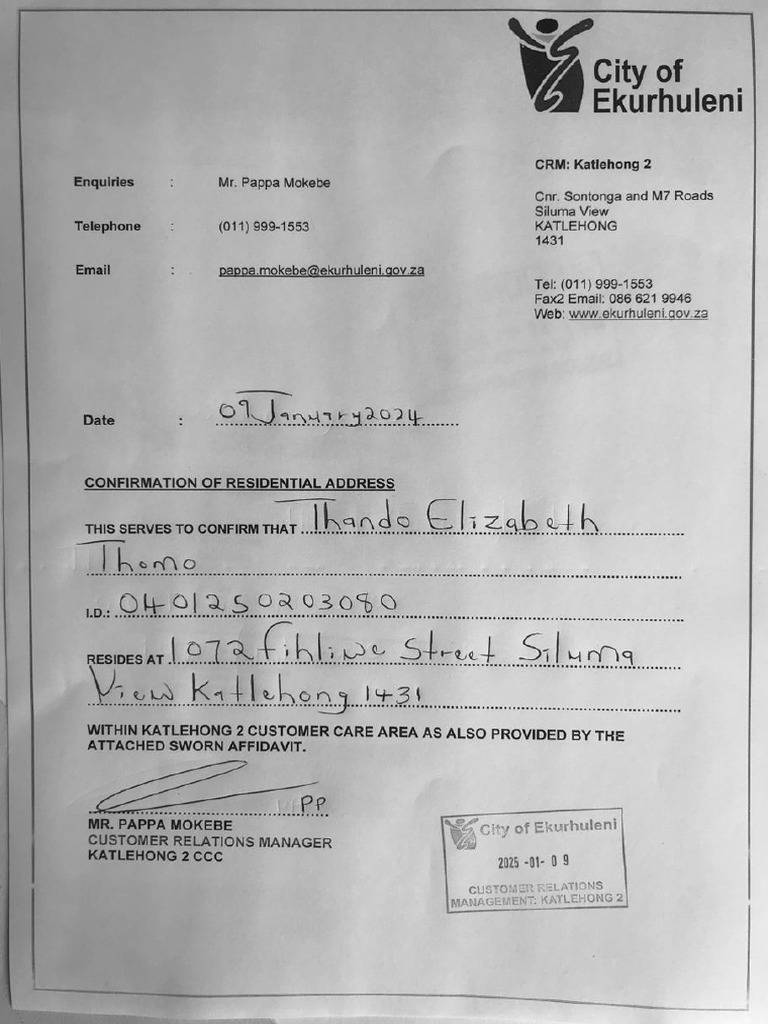 City of
Ekurhuleni
CRM: Katlehong 2
Enquiries : Mr. Pappa Mokebe
Cnr. Sontonga and M7 Roads
Siluma View
KATLEHONG
1431
Telephone : (011) 999-1553
Email : pappa.mokebe@ekurhuleni.gov.za
Tel: (011) 999-1553
Fax2 Email: 086 621 9946
Web: www.ekurhuleni.gov.za
Date : 09 January 2024
CONFIRMATION OF RESIDENTIAL ADDRESS
THIS SERVES TO CONFIRM THAT Thando Elizabeth
Thomo
I.D.: 0401250203080
RESIDES AT 1072 Fihliwe Street Siluma
View Katlehong 1431
WITHIN KATLEHONG 2 CUSTOMER CARE AREA AS ALSO PROVIDED BY THE
ATTACHED SWORN AFFIDAVIT.
PP
MR. PAPPA MOKEBE
CUSTOMER RELATIONS MANAGER
KATLEHONG 2 CCC
City of Ekurhuleni
2025 -01- 09
CUSTOMER RELATIONS
MANAGEMENT: KATLEHONG 2